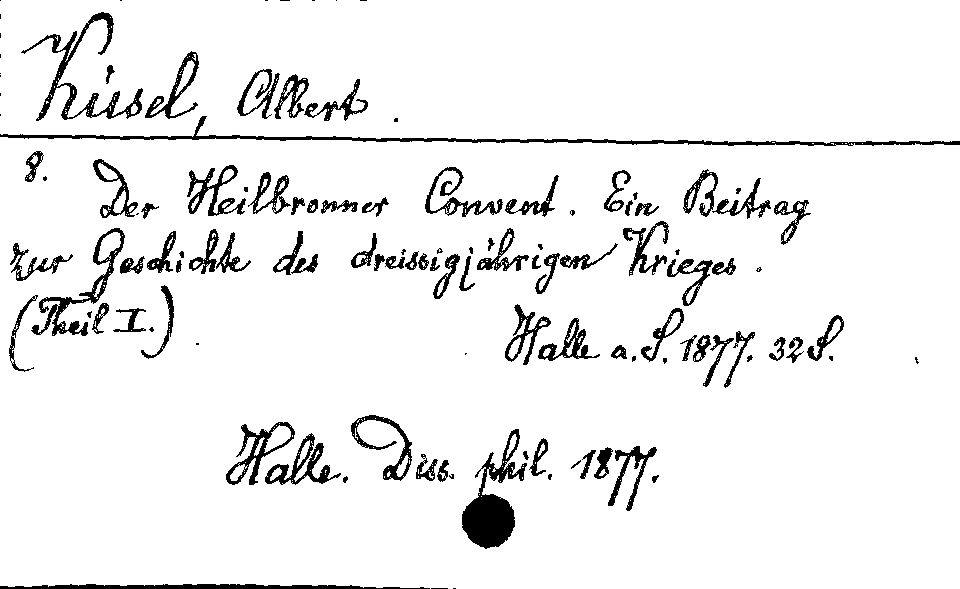 Küsel, Albert.
8. Der Heilbronner Convent. Ein Beitrag
zur Geschichte des dreissigjährigen Krieges.
(Theil I.)
Halle a. S. 1877. 32 S.
Halle. Diss. phil. 1877.